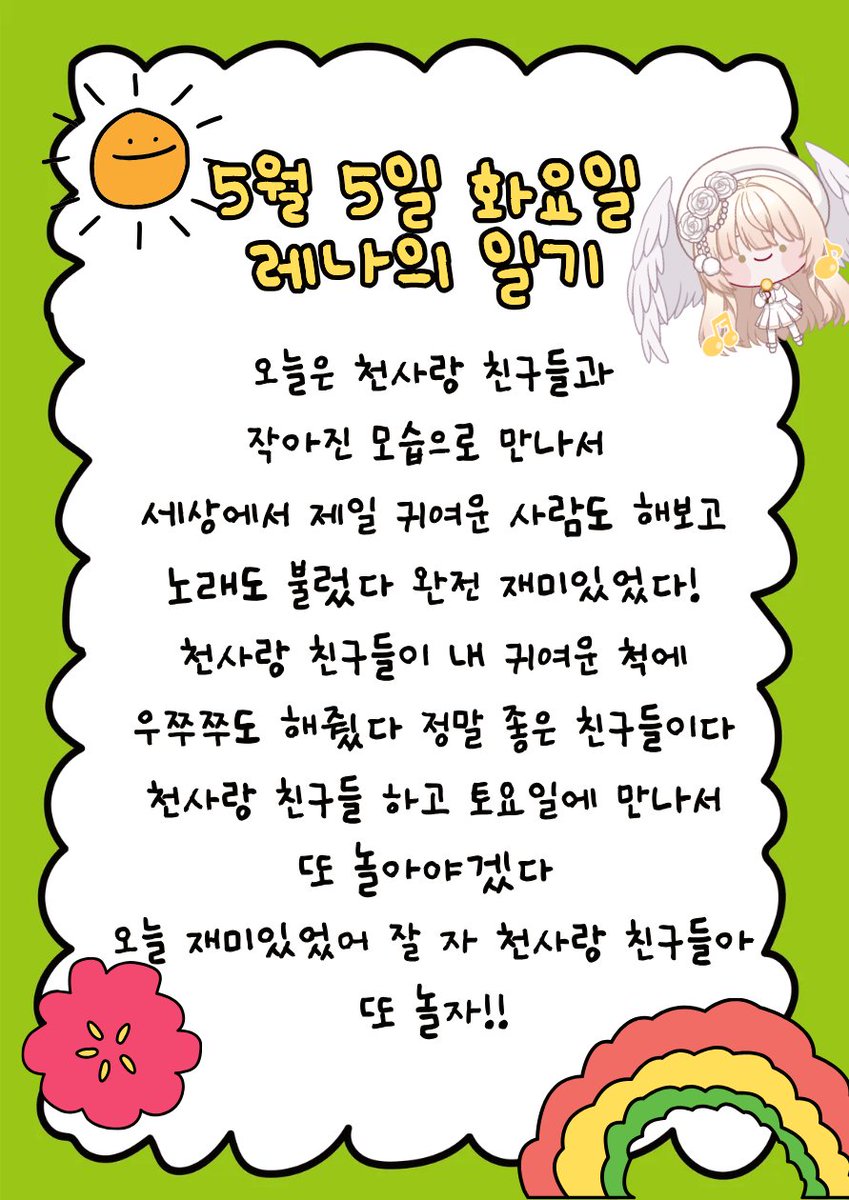 5월 5일 화요일
레나의 일기
오늘은 천사랑 친구들과
작아진 모습으로 만나서
세상에서 제일 귀여운 사람도 해보고
노래도 불렀다 완전 재미있었다!
천사랑 친구들이 내 귀여운 척에
우쭈쭈도 해줬다 정말 좋은 친구들이다
천사랑 친구들 하고 토요일에 만나서
또 놀아야겠다
오늘 재미있었어 잘 자 천사랑 친구들아
또 놀자!!